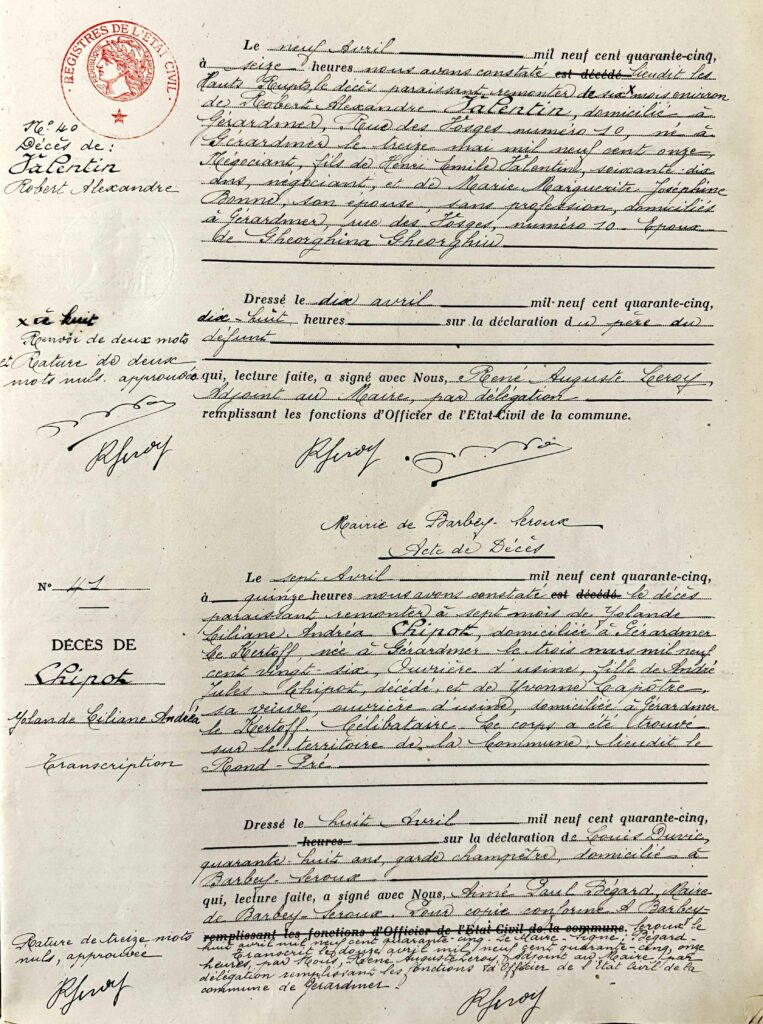 REGISTRES DE L'ÉTAT CIVIL
RÉPUBLIQUE FRANÇAISE
N° 40
Décès de :
Valentin
Robert Alexandre
Le neuf Avril mil neuf cent quarante-cinq,
à seize heures nous avons constaté est décédé lieudit les
Hauts Rupts, le décès paraissant remonter de six x mois environ
de Robert Alexandre Valentin, domicilié à
Gérardmer, Rue des Vosges numéro 10, né à
Gérardmer le treize mai mil neuf cent onze,
Négociant, fils de Henri Emile Valentin, soixante-dix
ans, négociant, et de Marie Marguerite Joséphine
Bonne, son épouse, sans profession, domiciliés
à Gérardmer, rue des Vosges, numéro 10. Epoux
de Gheorghina Gheorghiu
x à huit
Renvoi de deux mots
et Rature de deux
mots nuls. approuvée
Dressé le dix avril mil neuf cent quarante-cinq,
dix-huit heures sur la déclaration du père du
défunt
qui, lecture faite, a signé avec Nous, René Auguste Leroy,
Adjoint au Maire, par délégation
remplissant les fonctions d'Officier de l'Etat-Civil de la commune.
RLeroy
RLeroy
Mairie de Barbey-Seroux
Acte de Décès
N° 41
DÉCÈS DE
Chipot
Yolande Liliane Andréa
Transcription
Le sept Avril mil neuf cent quarante-cinq,
à quinze heures nous avons constaté est décédé le décès
paraissant remonter à sept mois de Yolande
Liliane Andréa Chipot, domiciliée à Gérardmer
le Kertoff, née à Gérardmer le trois mars mil neuf
cent vingt-six, Ouvrière d'usine, fille de André
Jules Chipot, décédé, et de Yvonne Lapôtre,
sa veuve, ouvrière d'usine, domiciliée à Gérardmer
le Kertoff. Célibataire. Le corps a été trouvé
sur le territoire de la Commune, lieudit le
Rond-Pré
Dressé le huit Avril mil neuf cent quarante-cinq,
heures sur la déclaration de Louis Duvic,
quarante-huit ans, garde champêtre, domicilié à
Barbey-Seroux
qui, lecture faite, a signé avec Nous, Aimé Paul Bégard, Maire
de Barbey-Seroux. Pour copie conforme A Barbey-
remplissant les fonctions d'Officier de l'Etat Civil de la commune. Seroux, le
huit avril mil neuf cent quarante-cinq. Le Maire - Signé : Bégard.
Transcrit le douze avril mil neuf cent quarante-cinq, onze
heures, par Nous, René Auguste Leroy, Adjoint au Maire, par
délégation remplissant les fonctions d'Officier de l'Etat Civil de la
commune de Gérardmer.
Rature de treize mots
nuls, approuvée
RLeroy
RLeroy